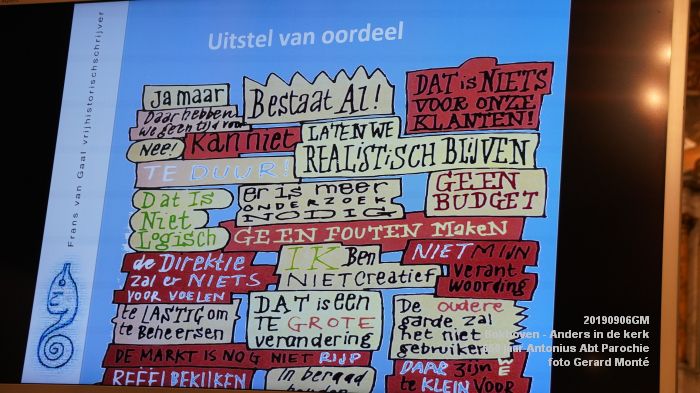 Uitstel van oordeel
Frans van Gaal vrijhistorischschrijver
Ja maar
Daar hebben
we geen tijd voor
Bestaat Al!
DAT is NIETS
VOOR ONZE
KLANTEN!
Nee!
Kan niet
LATEN WE
REALISTISCH BLIJVEN
TE DUUR!
Dat Is
Niet
Logisch
er is meer
ONDERZOEK
NODIG
GEEN
BUDGET
GEEN FOUTEN MaKeN
de Direktie
zal er NIETS
VOOR VOELEN
IK Ben
NIET Creatief
NIET MIJN
Verant
woording
te LASTIG om
te Beheersen
DAT is een
TE GROTE
verandering
De oudere
garde zal
het niet
gebruiken
DE MARKT IS NOG NIET RIJP
REËEL BEKIJKEN
In beraad
houden
DAAR zijn
te KLEIN VOOR
20190906GM
Bokhoven - Anders in de kerk
jaar Antonius Abt Parochie
foto Gerard Monté